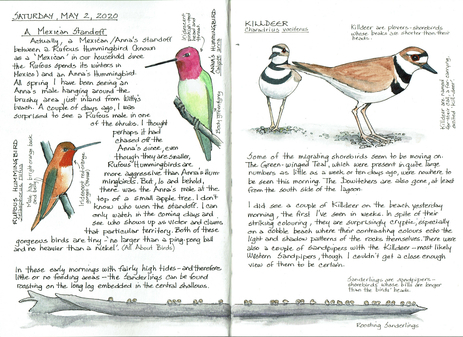 SATURDAY, MAY 2, 2020
A Mexican Standoff
Actually, a Mexican/Anna's standoff
between a Rufous Hummingbird (known
as a 'Mexican' in our household since
the Rufous spends its winters in
Mexico) and an Anna's Hummingbird.
All spring I have been seeing an
Anna's male hanging around the
brushy area just inland from
beach. A couple of days ago, I was
surprised to see a Rufous male in one
of the shrubs. I thought
perhaps it had
chased off the
Anna's since, even
though they are smaller,
Rufous Hummingbirds are
more aggressive than Anna's Hum-
mingbirds. But, lo and behold,
there was the Anna's male at the
top of a small apple tree. I don't
know who won the standoff. I can
only watch in the coming days and
see who shows up as victor and claims
that particular territory. Both of these
gorgeous birds are tiny - 'no larger than a ping-pong ball
and no heavier than a nickel'. (All About Birds)
In these early mornings with fairly high tides - and therefore
little or no feeding areas - the Sanderlings can be found
roosting on the long log embedded in the central shallows.
ANNA'S HUMMINGBIRD
Calypte anna
Body green/grey
RUFOUS HUMMINGBIRD
Selasphorus rufus
Male has bright orange back
and belly
Iridescent red/orange
gorget (throat)
KILLDEER
Charadrius vociferus
Killdeer are plovers - shorebirds
whose beaks are shorter than their
heads.
Killdeer are named
for their
Some of the migrating shorebirds seem to be moving on.
The Green-winged Teal, which were present in quite large
numbers as little as a week or ten days ago, were nowhere to
be seen this morning. The Dowitchers are also gone, at least
from the south side of the lagoon.
I did see a couple of Killdeer on the beach yesterday
morning, the first I've seen in weeks. In spite of their
striking colouring, they are surprisingly cryptic, especially
on a cobble beach where their contrasting colours echo the
light and shadow patterns of the rocks themselves. There were
also a couple of sandpipers with the Killdeer - most likely
Western Sandpipers, though I couldn't get a close enough
view of them to be certain.
Sanderlings are sandpipers -
shorebirds whose bills are longer
than the birds' heads.
Roosting Sanderlings